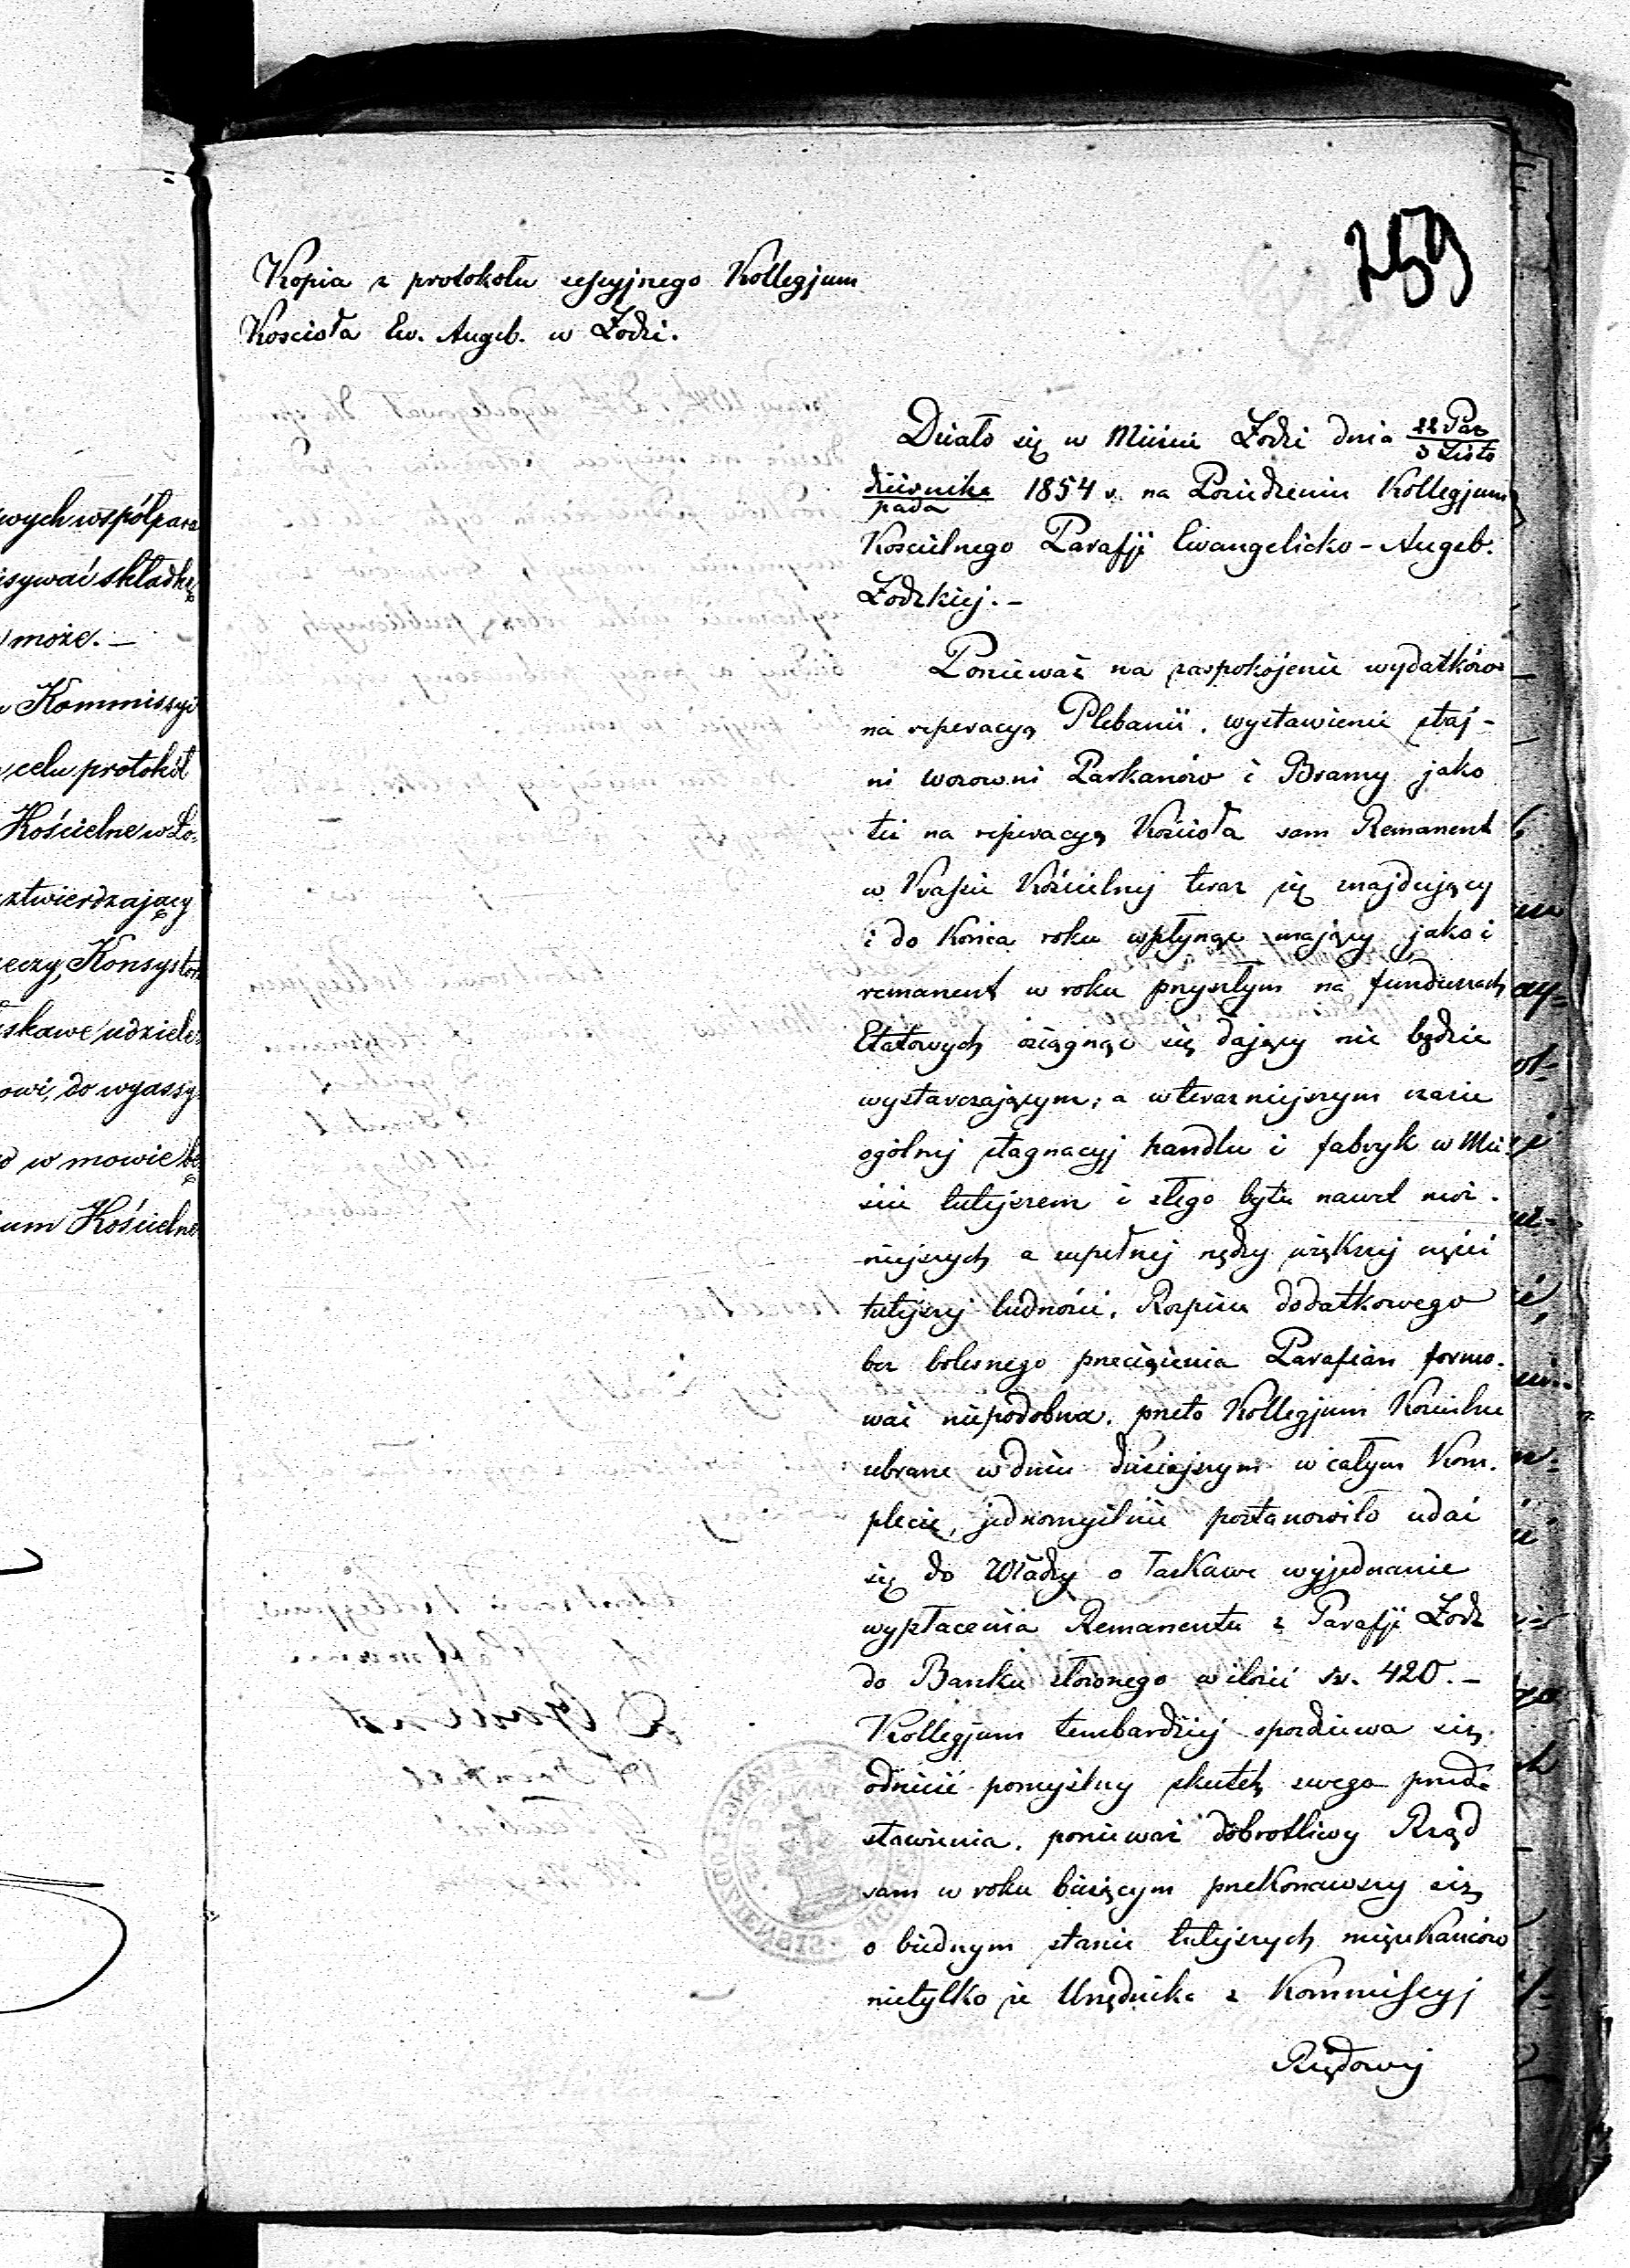 759
Kopia z protokołu sessyjnego Kollegjum
Kościoła Ew. Augsb. w Łodzi.
Działo się w Mieście Łodzi dnia 22 Paź/3 Listo
dziernika/pada 1854 r. na Posiedzeniu Kollegjum
Kościelnego Parafji Ewangelicko-Augsb.
Łodzkiej.-
Ponieważ na zaspokojenie wydatków
na reperacyą Plebanii, wystawienie staj-
ni wozowni Parkanów i Bramy jako
też na reperacyą Kościoła sam Remanent
w Kassie Kościelnej teraz się znajdujący
i do końca roku wpłynąc mający jako i
remanent w roku przyszłym na funduszach
Etatowych osiągnąć się dający nie będzie
wystarczającym; a w teraźniejszym czasie
ogólnej stagnacyj handlu i fabryk w Mie-
ście tutejszem i złego bytu nawet moż-
niejszych a zupełnej nędzy większej części
tutejszej ludności, Rozpisu dodatkowego
bez bolesnego przeciążenia Parafian formo-
wać niepodobna, przeto Kollegjum Kościelne
zebrane w dniu dzisiejszym w całym Kom-
plecie, jednomyślnie postanowiło udać
się do Władzy o łaskawe wyjednanie
wypłacenia Remanentu z Parafji Łodz
do Banku złożonego w ilości sr. 420.-
Kollegjum tembardziej spodziewa się
odnieść pomyślny skutek swego przed-
stawienia, ponieważ dobrotliwy Rząd
sam w roku bieżącym przekonawszy się
o biednym stanie tutejszych mięszkańców
nietylko że Urzędnika z Kommissyj
Rządowej
wych współpara
isywać składkę
może.-
Kommissyi
celu protokół
Kościelne w Ło-
ztwierdzający
eczy, Konsystor
skawe udziele-
owi, do wyassy-
w mowie bę
um Kościelne